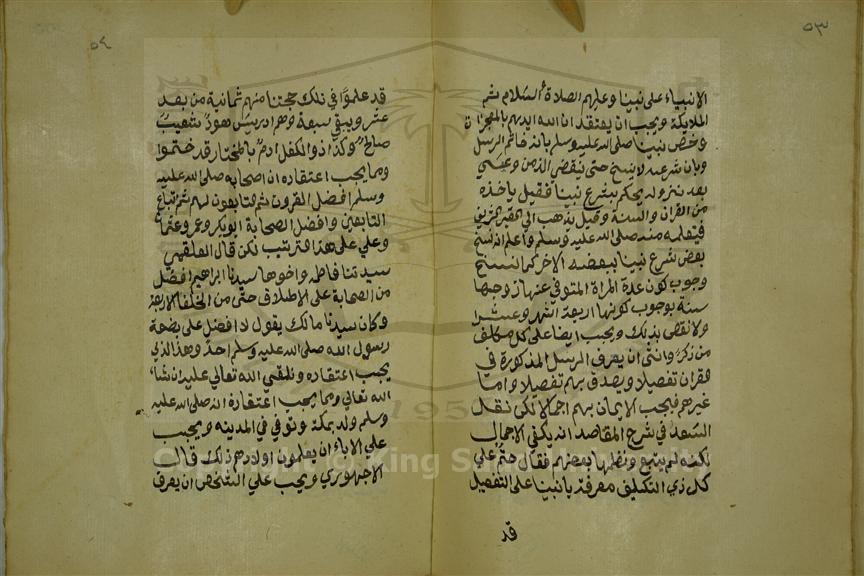 ٥٣
الانبياء على نبينا وعليهم الصلاة والسلام ثم
الملايكة ويجب ان يعتقد ان الله ايدهم بالمعجزات
وخص نبينا صلى الله عليه وسلم بانه خاتم الرسل
وبان شرعه لا ينسخ حتى ينقضي الزمن وعيسى
بعد نزوله يحكم بشرع نبينا فقيل ياخذه
من القران والسنة وقيل يذهب الى القبر الشريف
فيتعلمه منه صلى الله عليه وسلم واعلم انه ينسخ
بعض شرع نبينا ببعضه الاخر كما نسخ
وجوب كون عدة المراة المتوفي عنها زوجها
سنة بوجوب كونها اربعة اشهر وعشرا
ولا نقص بذلك ويجب ايضا على كل مكلف
من ذكر وانثى ان يعرف الرسل المذكورة في
القران تفصيلا ويصدق بهم تفصيلا واما
غيرهم فيجب الايمان بهم اجمالا لكن نقل
السعد في شرح المقاصد انه يكفي الاجمال
لكنه لم يتبع ونظمها بعضهم فقال حتم على
كل ذي التكليف معرفة بانبيا على التفصيل
قد
٥٤
قد علموا في تلك حجتنا منهم ثمانية من بعد
عشر ويبقي سبعة وهم ادريس هود شعيب
صالح وكذا ذو الكفل ادم بالمختار قد ختموا
ومما يجب اعتقاده ان اصحابه صلى الله عليه
وسلم افضل القرون ثم التابعون لهم ثم اتباع
التابعين وافضل الصحابة ابو بكر وعمر وعثمان
وعلي على هذا الترتيب لكن قال العلقمي
سيدتنا فاطمه واخوها سيدنا ابراهيم افضل
من الصحابة على الاطلاق حتى من الخلفا الاربعة
وكان سيدنا مالك يقول لا افضل على بضعة
رسول الله صلى الله عليه وسلم احد وهذا الذي
يجب اعتقاده ونلقي الله تعالى عليه ان شاء
الله تعالى ومما يجب اعتقاده انه صلى الله عليه
وسلم ولد بمكة وتوفي في المدينه ويجب
على الاباء ان يعلمون اولادهم ذلك قال
الاجهوري ويجب على الشخص ان يعرف
1957
Copyright © King Saud University